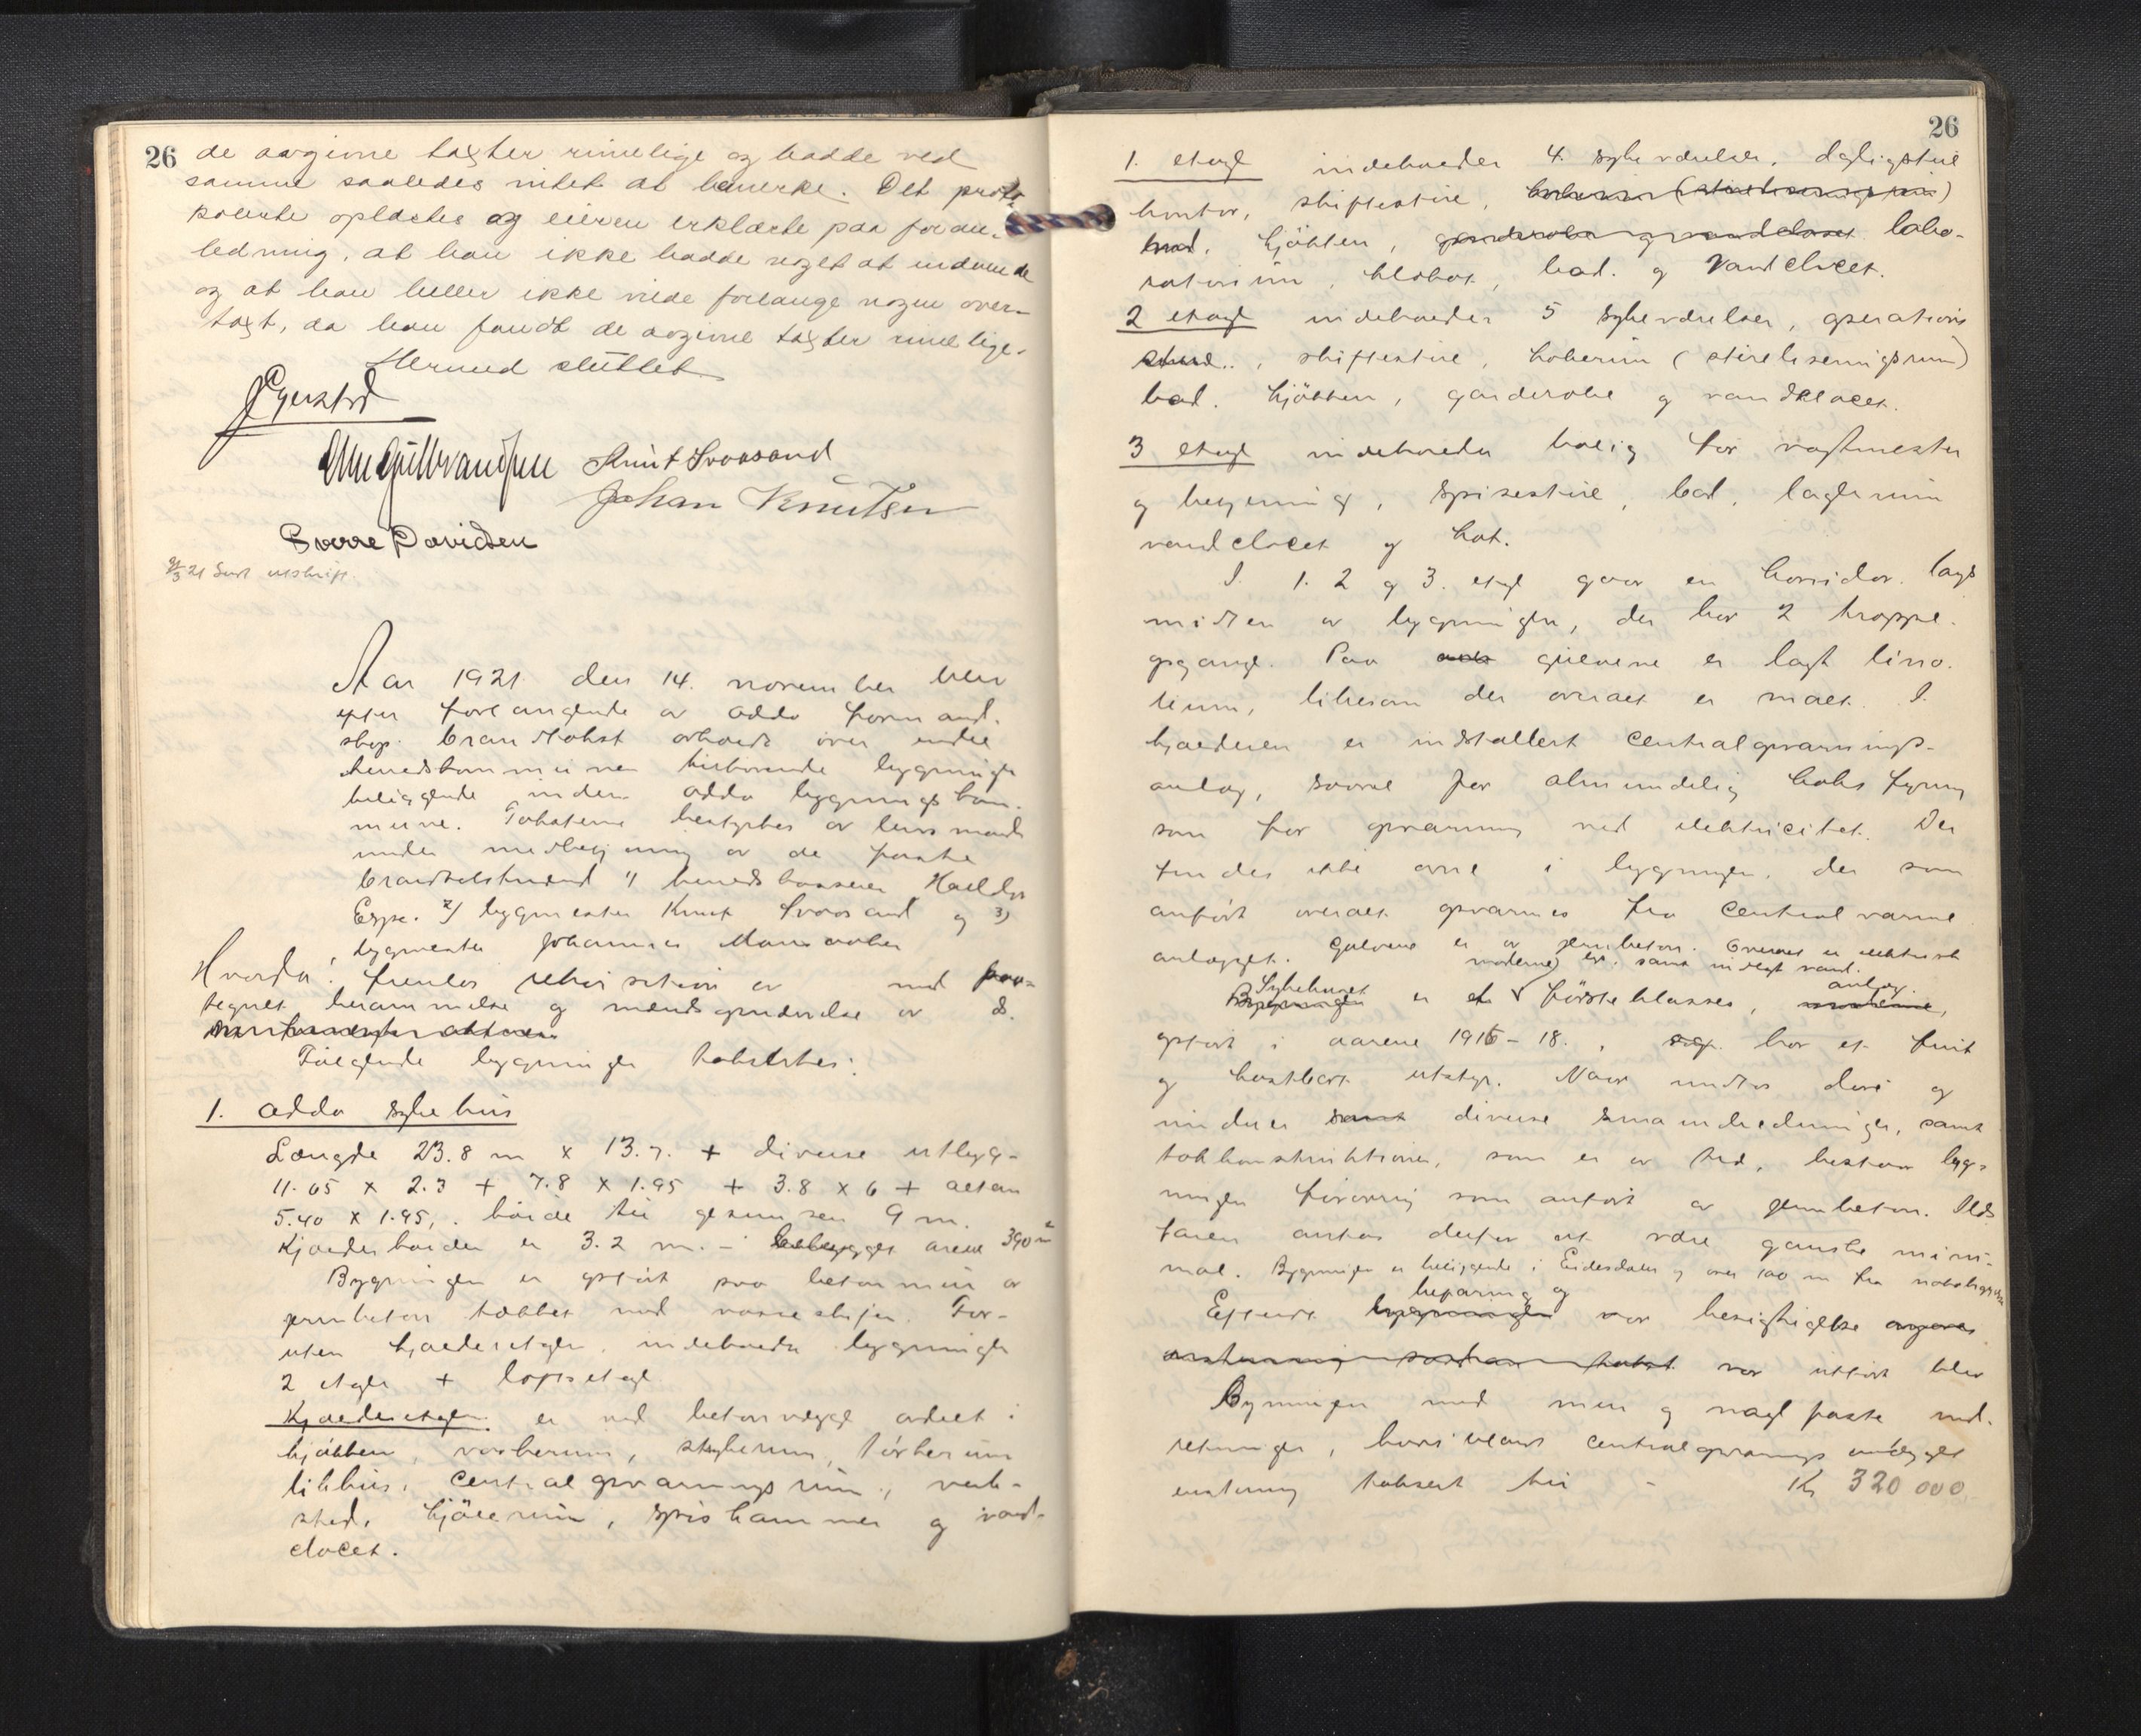 26
de avgivne takster rimelige og hadde ved
samme saaledes intet at bemerke. Det proto-
kolerte oplæstes og eieren erklærte paa foran-
ledning, at han ikke hadde noget at indvende
og at han heller ikke vilde forlange nogen over-
takst, da han fandt de avgivne takster rimelige.
Hermed sluttet
Gjerstad
Gulbrandsen Knut Svaasand
Johan Knutsen
Sverre Davidsen
21 Sendt utskrift.
Aar 1921 den 14. november blev
efter forlangende av Odda formand-
skap brandtakst avholdt over endel
herredskommunen tilhørende bygninger
beliggende inden Odda bygningskom-
mune. Taksten bestyrtes av lensmand
under medbetjening av de faste
brandtakstmænd 1) herredskasserer
Espe. 2) bygmester Knut Svaasand og 3)
bygmester Johannes
Hvorda! fremlas rekvisition av med paa-
tegnet berammelse og mandsopnævnelse av d.
Følgende bygninger taksertes:
1. Odda sykehus
Længde 23.8 m x 13.7. + diverse utbygg-
11.05 x 2.3 + 7.8 x 1.95 + 3.8 x 6 + altan
5.40 x 1.95,. høide til gesimsen 9 m.
Kjælderhøiden er 3.2 m. - bebygget areal 390 m²
Bygningen er opført paa betonmur av
jernbeton tækket med skifer. For-
uten kjælderetagen indeholder bygningen
2 etager + loftsetage
Kjælderetagen er ved betonvægge avdelt i
kjøkken, vaskerum, strykerum, tørkerum
likhus, centralopvarmingsrum, verk-
sted, kjølerum, spiskammer og vand-
closet.
26
1. etage indeholder 4 sykeværelser, dagligstue
kontor, skiftestue, kokerum (steriliseringsrum)
bad, kjøkken, garderobe og vandcloset labo-
ratorium, bad. og Vandcloset.
2 etage indeholder 5 sykeværelser, operations
stue, skiftestue, kokerum (steriliseringsrum)
bad. kjøkken, garderobe og vandkloset.
3 etage indeholder bolig for vagtmester
og betjening, spisestue, bad, lagerrum
vandcloset og kot.
I 1. 2 og 3. etage gaar en korridor langs
midten av bygningen, der har 2 trappe-
opgange. Paa gulvene er lagt lino-
leum, likesom der overalt er malt. I
kjælderen er indstallert centralopvarmings-
anlæg, saavel for almindelig koks fyring
som for opvarming ved elektricitet. Der
findes ikke ovne i bygningen, der som
anført overalt opvarmes fra centralvarme
anlægget. Gulvene er av jernbeton. Overalt er elektrisk
moderne lys samt indlagt vand.
Sykehuset anlæg.
Bygningen er et første klasses, moderne,
opført i aarene 1916-18., har et fint
og kostbart utstyr. Naar undtas døre og
vinduer samt diverse smaindredninger, samt
takkonstruktionen, som er av træ, bestaar byg-
ningen forøvrig som anført av jernbeton. Ilds-
faren antas derfor at være ganske mini-
mal. Bygningen er beliggende i Eidesdalen og over 100 m fra nabobygninger
befaring og
Efterat bygningen var besigtigelse
var utført blev
Bygningen med mur og nagl faste ind-
retninger, hvoriblandt centralopvarmings anlægget
enstemmig taksert til - Kr 320 000